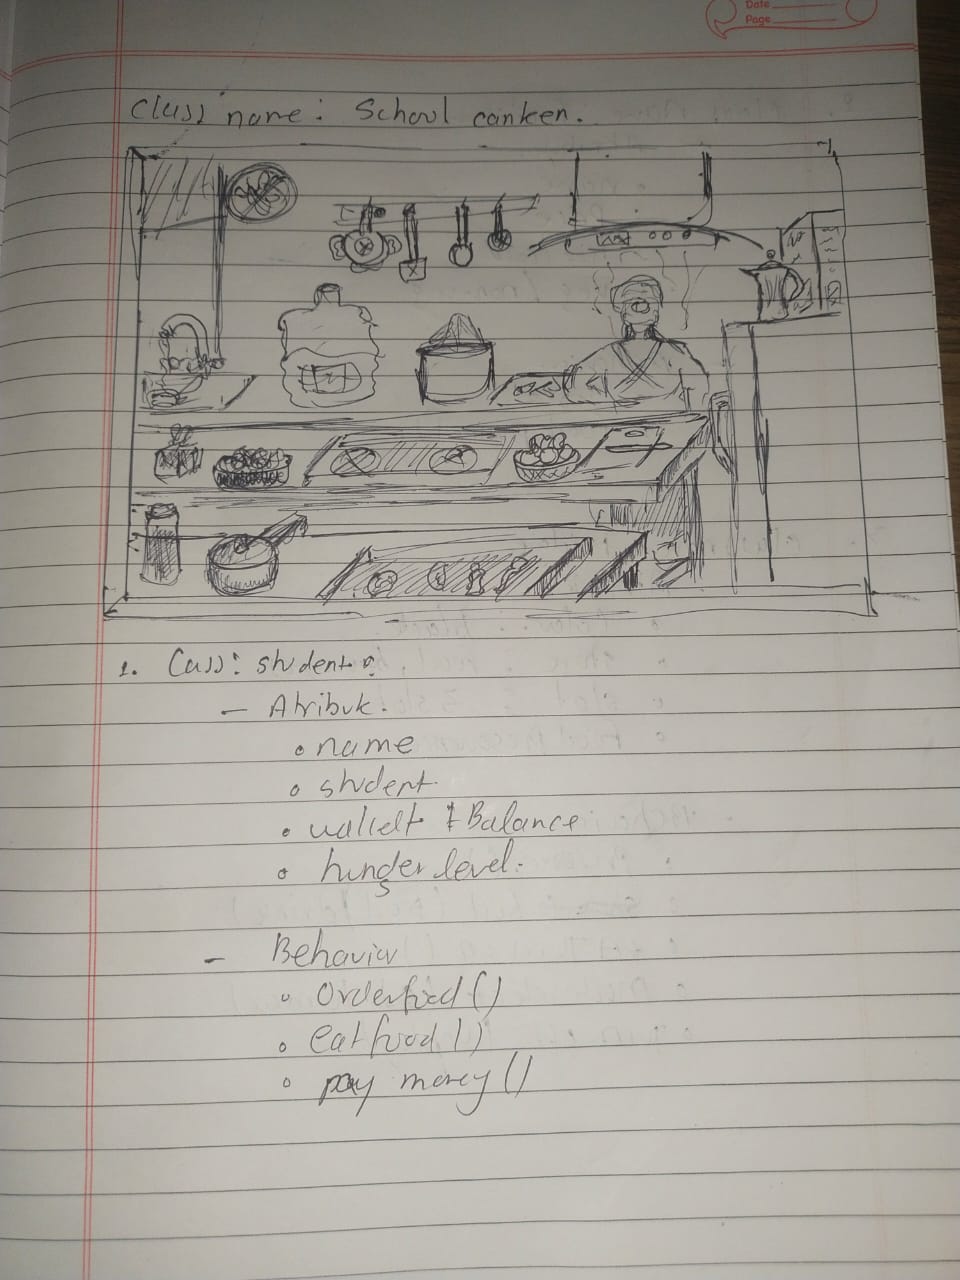 Date
Page
Class name: School canteen.
1. Class: student:
— Atribute.
• name
• student
• walledt & Balance
• hunger level.
— Behavior
• Orderfood()
• eatfood()
• pay money()